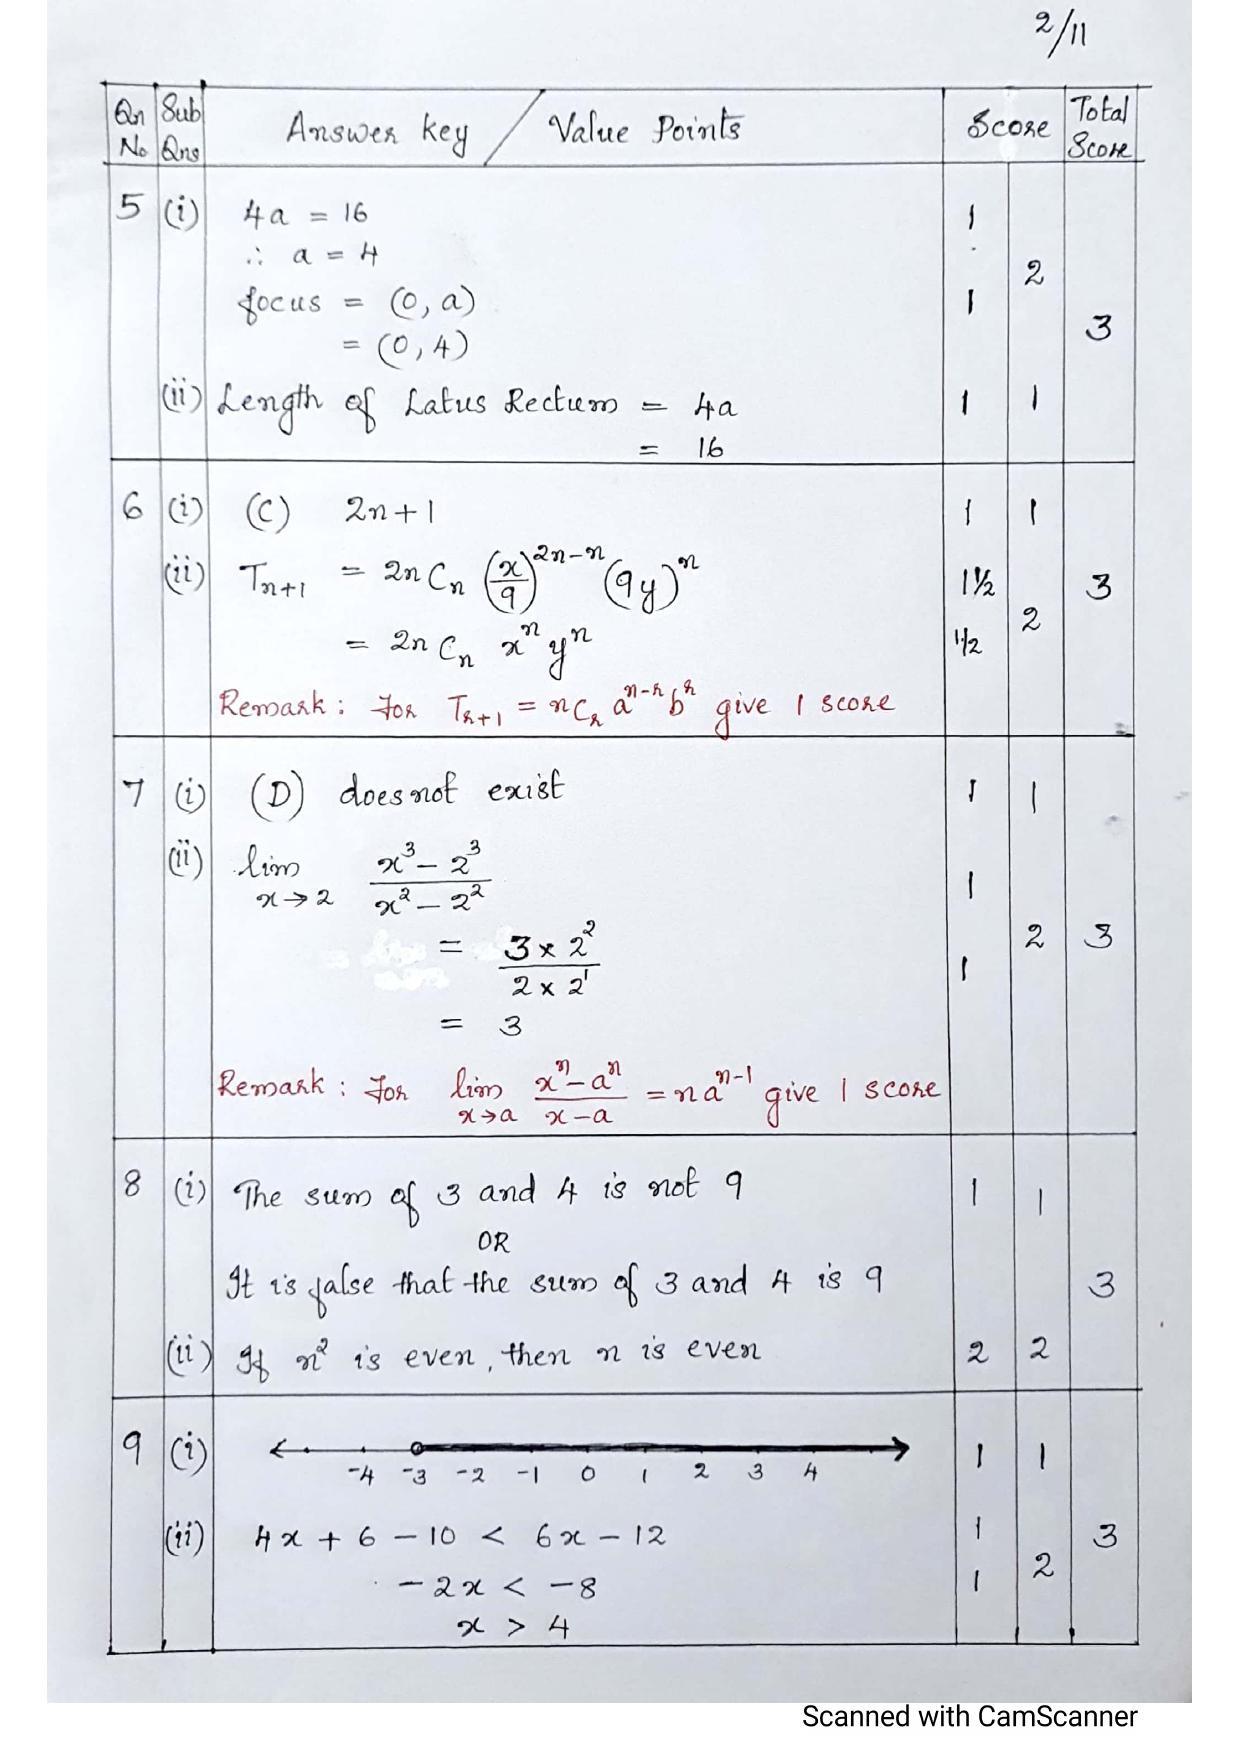 2/11
Qn No | Sub Qns | Answer key / Value Points | Score | Total Score
5 (i) 4a = 16 | 1
∴ a = 4 | 2
focus = (0, a) | 1
= (0, 4) | 3
(ii) Length of Latus Rectum = 4a | 1 | 1
= 16
6 (i) (C) 2n+1 | 1 | 1
(ii) Tn+1 = 2nCn (x/9)^2n-n (9y)^n | 1½ | 2 | 3
= 2nCn x^n y^n | 1/2
Remark : For Tr+1 = nCr a^n-r b^r give 1 score
7 (i) (D) does not exist | 1 | 1
(ii) lim x→2 (x³ − 2³)/(x² − 2²) | 1
= (3 × 2²)/(2 × 2¹) | 1 | 2 | 3
= 3
Remark : For lim x→a (x^n − a^n)/(x − a) = na^n-1 give 1 score
8 (i) The sum of 3 and 4 is not 9 | 1 | 1
OR
It is false that the sum of 3 and 4 is 9 | 3
(ii) If n² is even, then n is even | 2 | 2
9 (i) | 1 | 1
-4 -3 -2 -1 0 1 2 3 4
(ii) 4x + 6 − 10 < 6x − 12 | 1 | 3
− 2x < −8 | 1 | 2
x > 4
Scanned with CamScanner